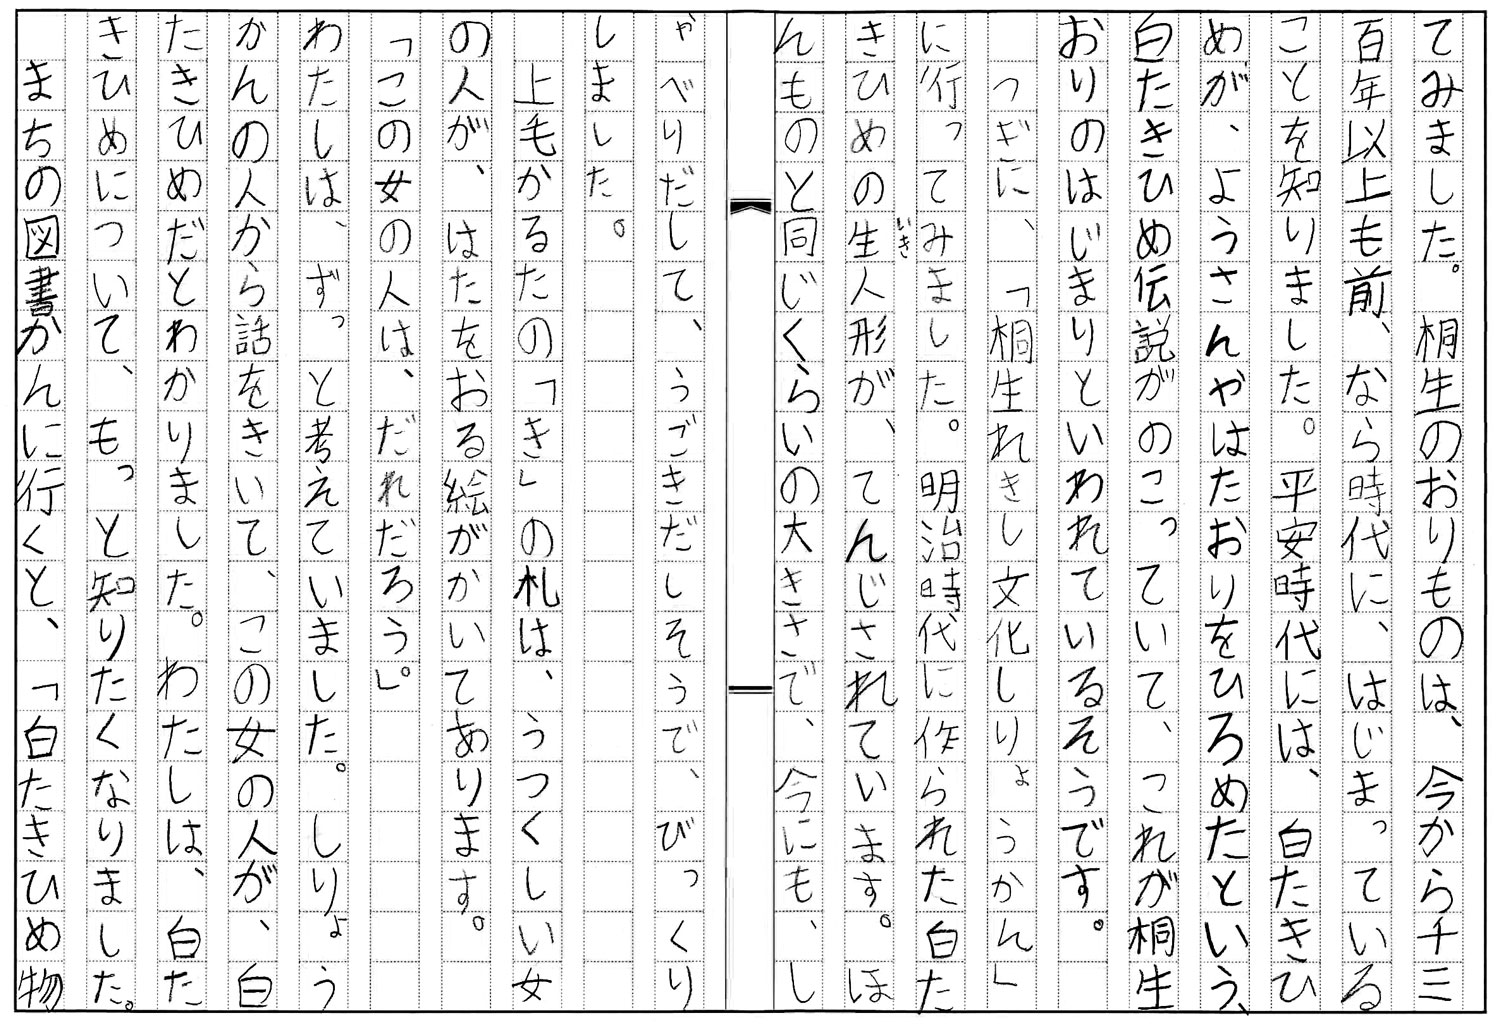 てみました。桐生のおりものは、今から千三
百年以上も前、なら時代に、はじまっている
ことを知りました。平安時代には、白たきひ
めが、ようさんやはたおりをひろめたという、
白たきひめ伝説がのこっていて、これが桐生
おりのはじまりといわれているそうです。
つぎに、「桐生れきし文化しりょうかん」
に行ってみました。明治時代に作られた白た
きひめの生人形が、てんじされています。ほ
いき
んものと同じくらいの大きさで、今にも、し
ゃべりだして、うごきだしそうで、びっくり
しました。
上毛かるたの「き」の札は、うつくしい女
の人が、はたをおる絵がかいてあります。
「この女の人は、だれだろう」。
わたしは、ずっと考えていました。しりょう
かんの人から話をきいて、この女の人が、白
たきひめだとわかりました。わたしは、白た
きひめについて、もっと知りたくなりました。
まちの図書かんに行くと、「白たきひめ物